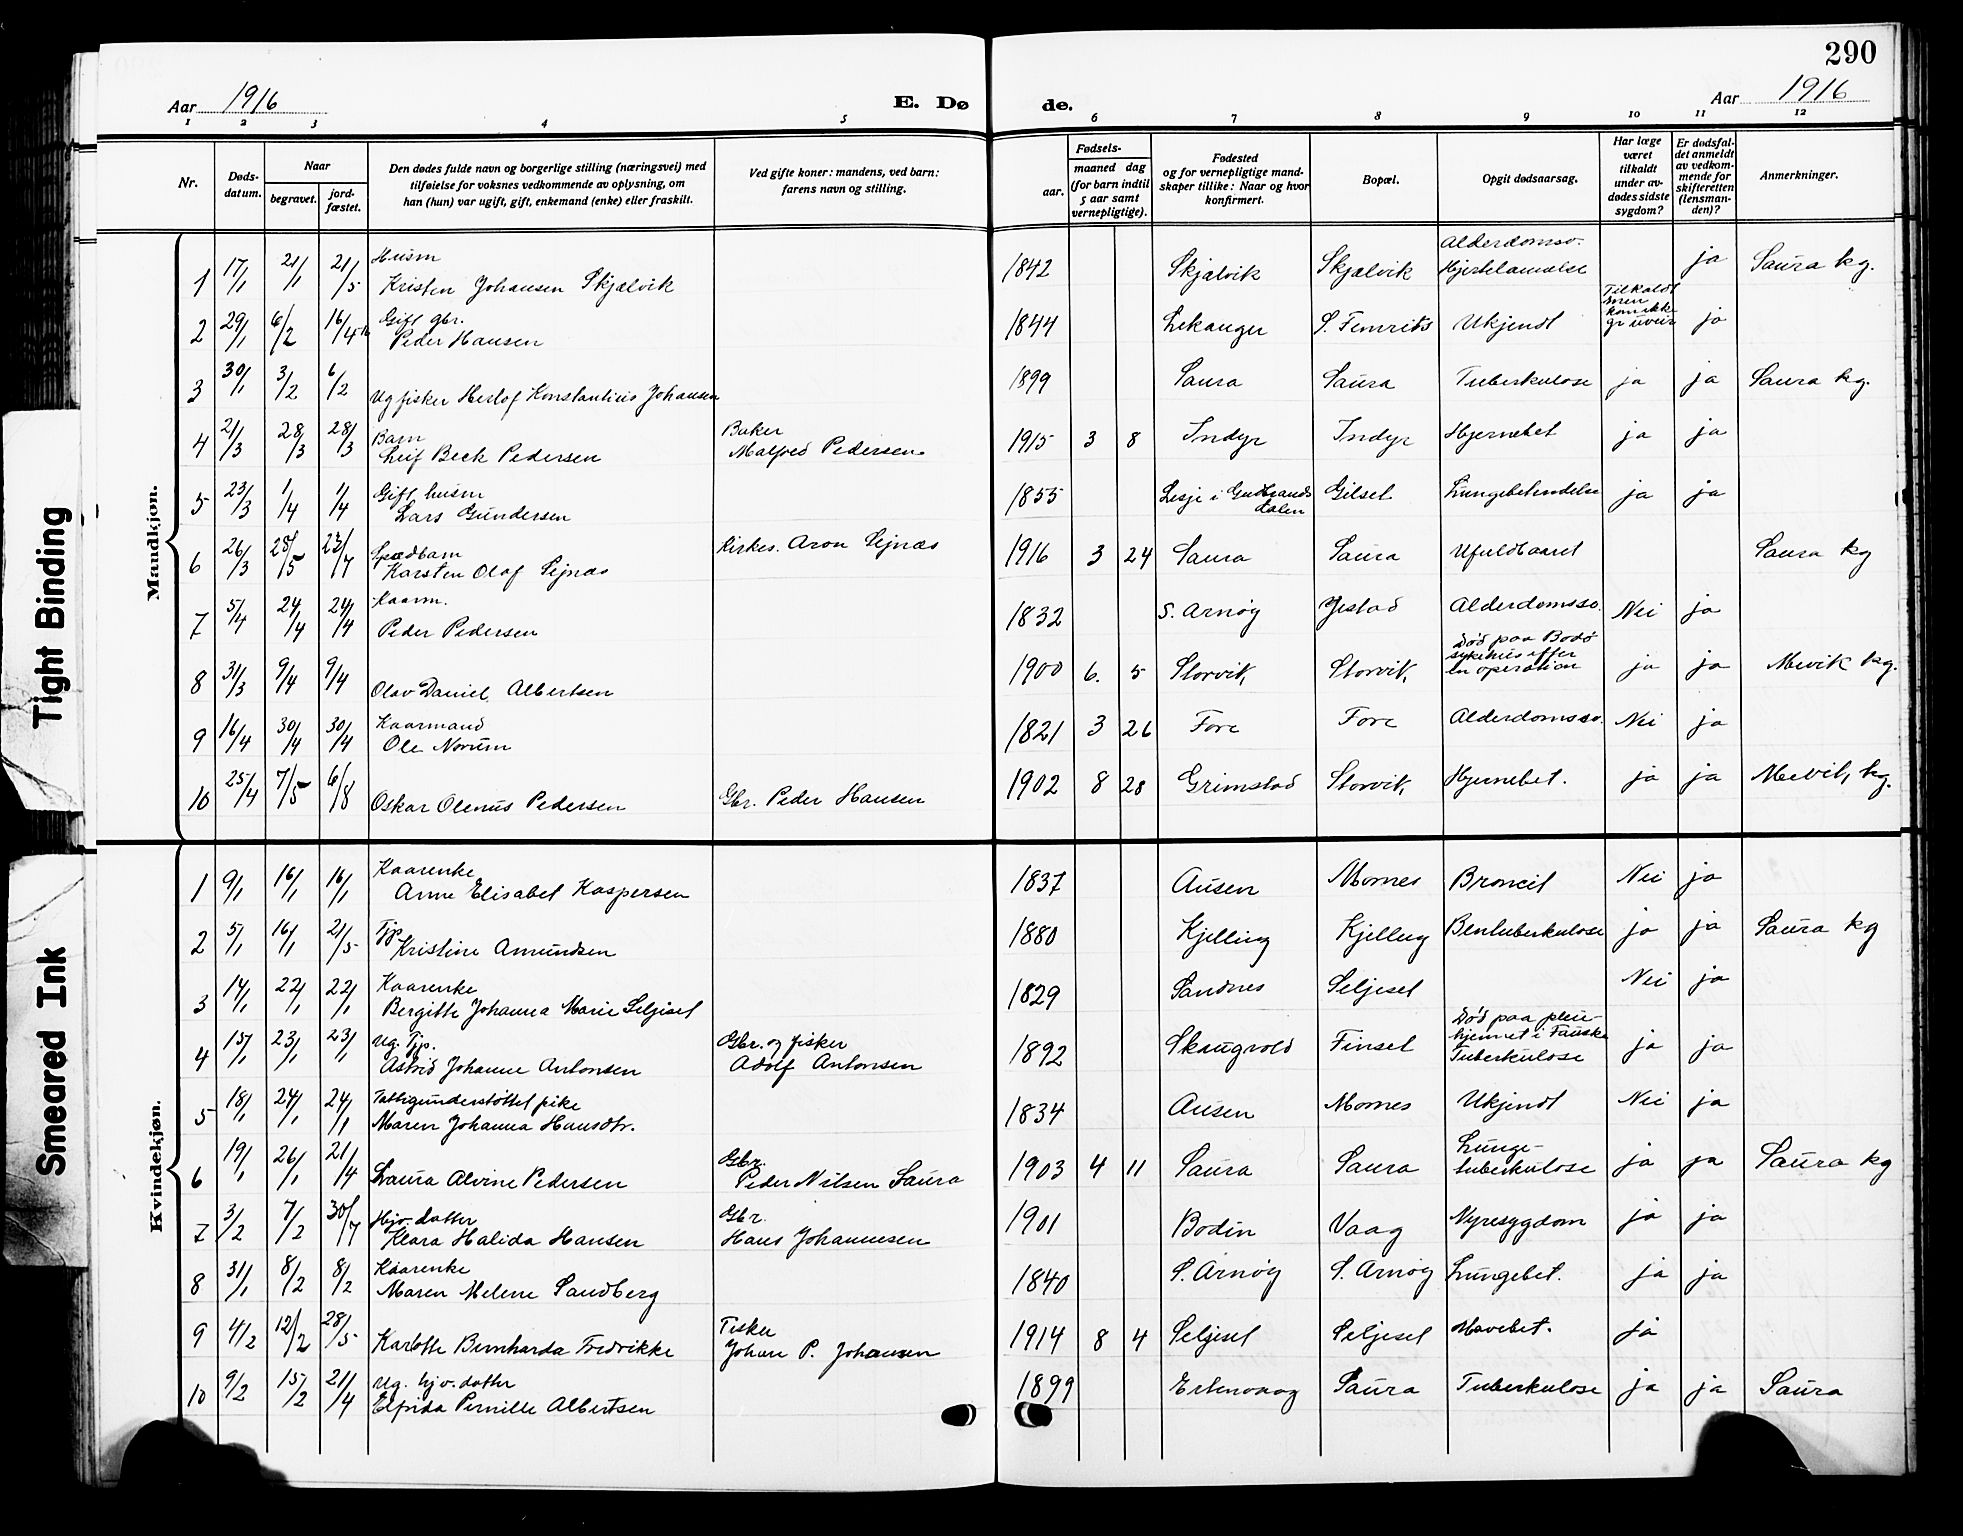 290
Aar 1916 E. Dø de. Aar 1916
1 2 3 4 5 6 7 8 9 10 11 12
Nr.
Døds-
datum.
Naar
begravet.
jord-
fæstet.
Den dødes fulde navn og borgerlige stilling (næringsvei) med
tilføielse for voksnes vedkommende av oplysning, om
han (hun) var ugift, gift, enkemand (enke) eller fraskilt.
Ved gifte koner: mandens, ved barn:
farens navn og stilling.
Fødsels-
aar.
maaned dag
(for barn indtil
5 aar samt
vernepligtige).
Fødested
og for vernepligtige mand-
skaper tillike: Naar og hvor
konfirmert.
Bopæl.
Opgit dødsaarsag.
Har læge
været
tilkaldt
under av-
dødes sidste
sygdom?
Er dødsfal-
det anmeldt
av vedkom-
mende for
skifteretten
(lensman-
den)?
Anmerkninger.
Tight Binding
Smeared Ink
Mandkjøn.
1 17/1 21/1 21/5 Husm Kristen Johansen Skjælvik 1842 Skjælvik Skjælvik Alderdomssv. Hjertelamelse ja Saura kg.
2 29/1 6/2 16/4 Gift gbr. Peder Hansen 1844 Lekanger S. Femris Ukjendt Tilkaldt men kom ikke gr uveir ja
3 30/1 3/2 6/2 Ug fisker Herlof Konstantius Johansen 1899 Saura Saura Tuberkulose ja ja Saura kg.
4 21/3 28/3 28/3 Barn Leif Beck Pedersen Baker Malfred Pedersen. 1915 3 8 Indyr Indyr Hjernebet ja ja
5 23/3 1/4 1/4 Gift husm Lars Gundersen 1855 Lesje i Gudbrandsdalen Gilset Lungebetendelse ja ja
6 26/3 28/5 23/7 Spædbarn Karsten Olaf Sejnæs Kirkes. Aron Sejnæs 1916 3 24 Saura Saura Ufuldbaaret Saura kg
7 5/4 24/4 24/4 Kaarm. Peder Pedersen 1832 S. Arnøy Ystad Alderdomssv. Nei ja
8 31/3 9/4 9/4 Olav Daniel Albertsen 1900 6. 5 Storvik, Storvik, Død paa Bodø sykehus efter en operation ja ja Mevik kg.
9 16/4 30/4 30/4 Kaarmand Ole Norum 1821 3 26 Fore Fore Alderdomssv. Nei ja
10 25/4 7/5 6/8 Oskar Olenus Pedersen Gbr. Peder Hansen 1902 8 28 Grimstad Storvik, Hjernebet. ja ja Mevik, kg.
Kvindekjøn.
1 9/1 16/1 16/1 Kaarenke Anne Elisabet Kaspersen 1837 Ausen Mornes Broncit Nei ja
2 5/1 16/1 21/5 Tjp Kristine Amundsen 1880 Kjelling Kjelling Bentuberkulose ja ja Saura kg
3 14/1 22/1 22/1 Kaarenke Bergitte Johanna Marie Seljeset 1829 Sandnes Seljeset Nei ja
4 15/1 23/1 23/1 Ug. Tjp. Astrid Johanne Antonsen Gbr. og fisker Adolf Antonsen 1892 Skaugvold Finset Død paa pleie-hjemmet i Fauske Tuberkulose ja ja
5 18/1 24/1 24/1 Fattigunderstøttet pike Maren Johanna Hansdtr. 1834 Ausen Mornes Ukjendt Nei ja
6 19/1 26/1 21/4 Laura Alvine Pedersen Gbr. Peder Nilsen Saura 1903 4 11 Saura Saura Lunge-tuberkulose ja ja Saura kg
7 3/2 7/2 30/7 Hjv. datter Klara Halida Hansen Gbr. Hans Johannesen 1901 Bodin Vaag Nyresygdom ja ja
8 31/1 8/2 8/2 Kaarenke Maren Melene Sandberg 1840 S. Arnøy S. Arnøy Lungebet. ja ja
9 4/2 12/2 28/5 Karlotte Bernharda Fredrikke Fisker Johan P. Johansen 1914 8 4 Seljeset Seljeset Mavebet. ja
10 9/2 15/2 21/4 Ug. hjv. datter Elfrida Pernille Albertsen 1899 Ertenvaag Saura Tuberkulose ja ja Saura